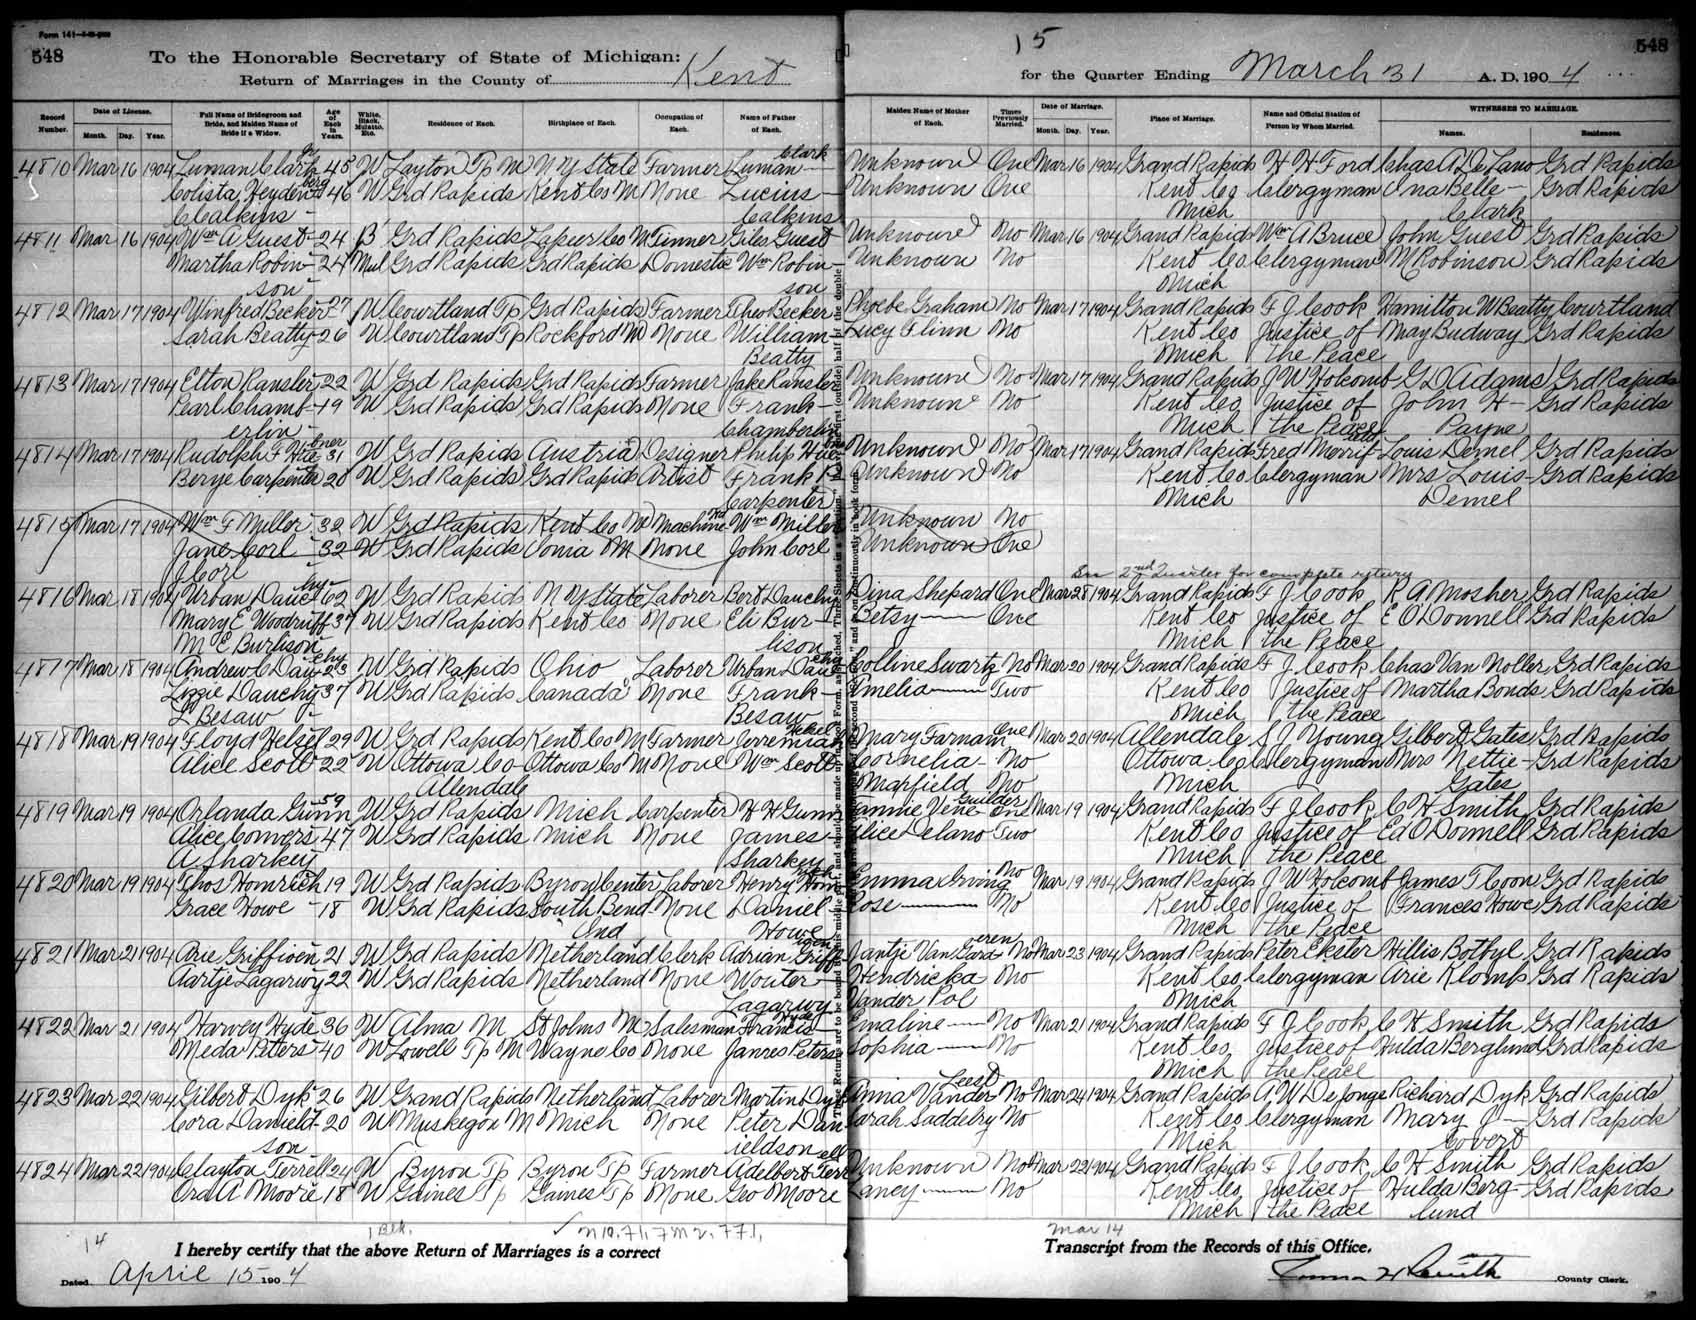 Form 141
548
To the Honorable Secretary of State of Michigan:
Return of Marriages in the County of Kent
15
548
for the Quarter Ending March 31 A. D. 190 4
Record Number. Date of License. Month. Day. Year. Full Name of Bridegroom and Bride, and Maiden Name of Bride if a Widow. Age of Each in Years. White, Black, Mulatto, Etc. Residence of Each. Birthplace of Each. Occupation of Each. Name of Father of Each. Maiden Name of Mother of Each. Times Previously Married. Date of Marriage. Month. Day. Year. Place of Marriage. Name and Official Station of Person by Whom Married. WITNESSES TO MARRIAGE. Names. Residences.
4810 Mar 16 1904 Luman Clark Jr 45 W Layton Tp M N Y State Farmer Luman Clark Unknown One Mar 16 1904 Grand Rapids H H Ford Chas A De Lano Grd Rapids
Colista Heydenberg 46 W Grd Rapids Kent Co M None Lucius Unknown One Kent Co Clergyman Ina Belle - Grd Rapids
C Calkins - Calkins Mich Clark
4811 Mar 16 1904 Wm A Guest 24 B Grd Rapids Lapeer Co M Tinner Giles Guest Unknown No Mar 16 1904 Grand Rapids Wm A Bruce John Guest Grd Rapids
Martha Robin- 24 Mul Grd Rapids Grd Rapids Domestic Wm Robin- Unknown No Kent Co Clergyman M Robinson Grd Rapids
son son Mich
4812 Mar 17 1904 Winfred Becker 27 W Courtland Tp Grd Rapids Farmer Theo Becker Phoebe Graham No Mar 17 1904 Grand Rapids F J Cook Hamilton W Beatty Courtland
Sarah Beatty 26 W Courtland Tp Rockford M None William Lucy Flinn No Kent Co Justice of May Budway Grd Rapids
Beatty Mich the Peace
4813 Mar 17 1904 Elton Ransler 22 W Grd Rapids Grd Rapids Farmer Jake Ransler Unknown No Mar 17 1904 Grand Rapids J W Holcomb G D Adams Grd Rapids
Pearl Chamb- 19 W Grd Rapids Grd Rapids None Frank- Unknown No Kent Co Justice of John H - Grd Rapids
erlin - Chamberlin Mich the Peace Payne
4814 Mar 17 1904 Rudolph F Hiebner 31 W Grd Rapids Austria Designer Philip Unknown No Mar 17 1904 Grand Rapids Fred Merrifield Louis Demel Grd Rapids
Berye Carpenter 20 W Grd Rapids Grd Rapids Artist Frank R- Unknown No Kent Co Clergyman Mrs Louis- Grd Rapids
Carpenter Mich Demel
4815 Mar 17 1904 Wm F Miller 32 W Grd Rapids Kent Co M Machine Hd Wm Miller Unknown No
Jane Corl 32 W Grd Rapids Ionia M None John Corl Unknown One
J Corl
See 2nd Quarter for complete return
4816 Mar 18 1904 Urban Dauchy 62 W Grd Rapids N Y State Laborer Bert Dauchy Dina Shepard One Mar 28 1904 Grand Rapids F J Cook R A Mosher Grd Rapids
Mary E Woodruff 37 W Grd Rapids Kent Co None Eli Bur- Betsy One Kent Co Justice of E O'Donnell Grd Rapids
M E Burlison lison Mich the Peace
4817 Mar 18 1904 Andrew C Dauchy 23 W Grd Rapids Ohio Laborer Urban Dauchy Colline Swartz No Mar 20 1904 Grand Rapids F J Cook Chas Van Noller Grd Rapids
Lizzie Dauchy 37 W Grd Rapids Canada None Frank- Emelia Two Kent Co Justice of Martha Bonds Grd Rapids
L Besaw - Besaw Mich the Peace
4818 Mar 19 1904 Floyd Helsel 29 W Grd Rapids Kent Co M Farmer Jerremiah Helsel Mary Farnam One Mar 20 1904 Allendale S J Young Gilbert Gates Grd Rapids
Alice Scott 22 W Ottowa Co Ottowa Co M None Wm Scott Cornelia- No Ottowa Co Clergyman Mrs Nettie- Grd Rapids
Allendale Marfield No Mich Gates
4819 Mar 19 1904 Orlanda Gunn 59 W Grd Rapids Mich Carpenter H H Gunn Fannie Vene Guilder One Mar 19 1904 Grand Rapids F J Cook C H Smith Grd Rapids
Alice Comers 47 W Grd Rapids Mich None James- Alice Delano Two Kent Co Justice of Ed O'Donnell Grd Rapids
A Sharkey Sharkey Mich the Peace
4820 Mar 19 1904 Thos Homrich 19 W Grd Rapids Byron Center Laborer Henry Homrich Emma Irving No Mar 19 1904 Grand Rapids J W Holcomb James T Coon Grd Rapids
Grace Howe 18 W Grd Rapids South Bend None Daniel Rose No Kent Co Justice of Frances Howe Grd Rapids
Ind Howe Mich the Peace
4821 Mar 21 1904 Arie Griffioen 21 W Grd Rapids Netherland Clerk Adrian Griffioen Jantje Van Garderen No Mar 23 1904 Grand Rapids Peter Ekster Hillis Bothyl Grd Rapids
Aartje Lagarwy 22 W Grd Rapids Netherland None Wouter- Hendricka No Kent Co Clergyman Arie Klomp Grd Rapids
Lagarwy Vander Pol Mich
4822 Mar 21 1904 Harvey Hyde 36 W Alma M St Johns M Salesman Francis Hyde Emaline No Mar 21 1904 Grand Rapids F J Cook C H Smith Grd Rapids
Meda Peters 40 W Lowell Tp M Wayne Co None James Peters Sophia No Kent Co Justice of Hulda Berglund Grd Rapids
Mich the Peace
4823 Mar 22 1904 Gilbert Dyk 26 W Grand Rapids Netherland Laborer Martin Dyk Anna Vander Leest No Mar 24 1904 Grand Rapids A W De Jonge Richard Dyk Grd Rapids
Cora Danield- 20 W Muskegon M Mich None Peter Dan Sarah Saddelry No Kent Co Clergyman Mary J - Grd Rapids
son ieldson Mich Covert
4824 Mar 22 1904 Clayton Terrell 24 W Byron Tp Byron Tp Farmer Adelbert Terrell Unknown No Mar 22 1904 Grand Rapids F J Cook C H Smith Grd Rapids
Ora A Moore 18 W Gaines Tp Gaines Tp None Geo Moore Laney No Kent Co Justice of Hulda Berg- Grd Rapids
Mich the Peace lund
14
1 Blk.
Mar 14
I hereby certify that the above Return of Marriages is a correct Transcript from the Records of this Office.
Dated April 15 190 4
County Clerk.